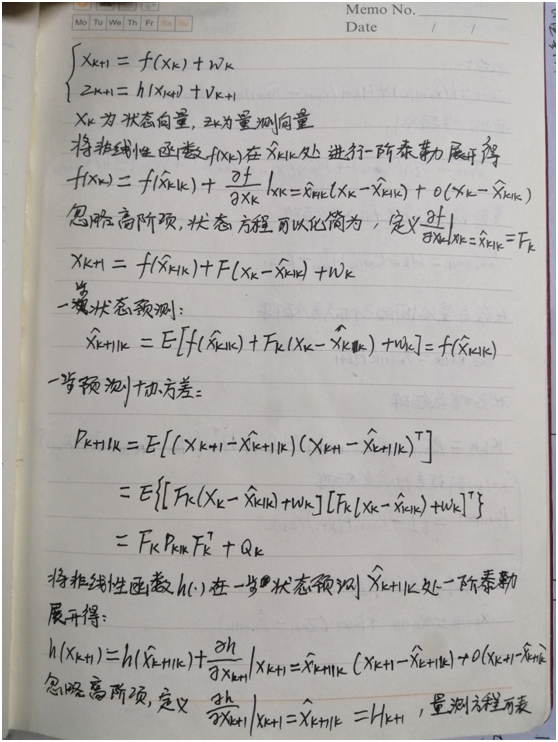 Memo No.
Mo Tu We Th Fr Sa Su
Date / /
{ x_{k+1} = f(x_k) + w_k
z_{k+1} = h(x_{k+1}) + v_{k+1}
x_k 为状态向量, z_k为量测向量
将非线性函数 f(x_k) 在 x̂_{k|k} 处 进行一阶泰勒展开得
f(x_k) = f(x̂_{k|k}) + ∂f/∂x_k |x_k=x̂_{k|k} (x_k - x̂_{k|k}) + o(x_k - x̂_{k|k})
忽略高阶项, 状态方程可以化简为, 定义 ∂f/∂x_k |x_k=x̂_{k|k} = F_k
x_{k+1} = f(x̂_{k|k}) + F(x_k - x̂_{k|k}) + w_k
一步状态预测:
x̂_{k+1|k} = E[f(x̂_{k|k}) + F_k(x_k - x̂_{k|k}) + w_k] = f(x̂_{k|k})
一步预测协方差:
P_{k+1|k} = E[(x_{k+1} - x̂_{k+1|k})(x_{k+1} - x̂_{k+1|k})^T]
= E{[F_k(x_k - x̂_{k|k}) + w_k][F_k(x_k - x̂_{k|k}) + w_k]^T}
= F_k P_{k|k} F_k^T + Q_k
将非线性函数 h(·) 在一步状态预测 x̂_{k+1|k} 处一阶泰勒
展开得:
h(x_{k+1}) = h(x̂_{k+1|k}) + ∂h/∂x_{k+1} |x_{k+1}=x̂_{k+1|k} (x_{k+1} - x̂_{k+1|k}) + o(x_{k+1} - x̂_{k+1|k})
忽略高阶项, 定义 ∂h/∂x_{k+1} |x_{k+1}=x̂_{k+1|k} = H_{k+1}, 量测方程可表